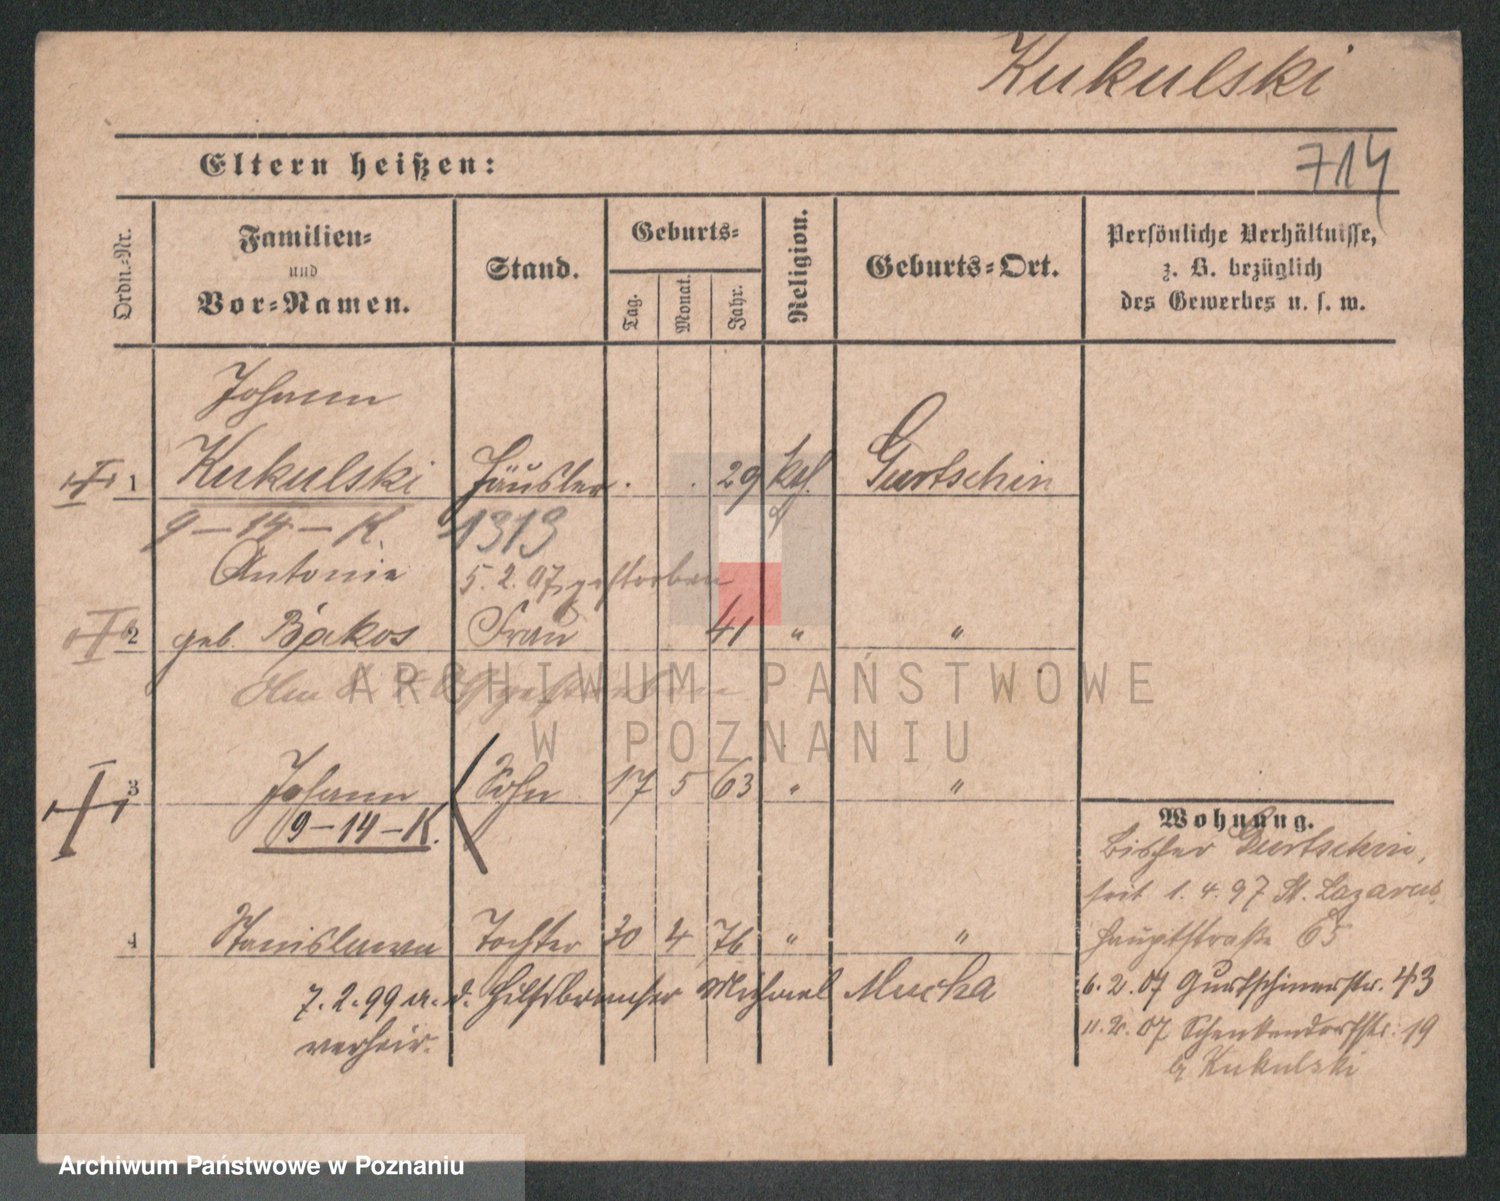 Kukulski
Eltern heißen:
714
Ordn.-Nr.
Familien-
und
Vor-Namen.
Stand.
Geburts-
Tag.
Monat.
Jahr.
Religion.
Geburts-Ort.
Persönliche Verhältnisse,
z. B. bezüglich
des Gewerbes u. s. w.
Johann
1 Kukulski Häusler. 29 kth. Gurtschin
9-14-K. 1313
Antonie 5.2.07 gestorben
2 geb. Bąkos Frau 41 " "
gestorben
3 Johann Sohn 17 5 63 " "
9-14-K.
4 Stanislawa Tochter 30 4 76 " "
7.2.99 a. d. Hilfsbremser Michael Mucha
verheir.
Wohnung.
bisher Gurtschin,
seit 1.4.97 St. Lazarus,
Hauptstraße 65
6.2.07 Gurtschinerstr. 43
11.2.07 Schenkendorfstr. 19
b. Kukulski
ARCHIWUM PAŃSTWOWE
W POZNANIU
Archiwum Państwowe w Poznaniu